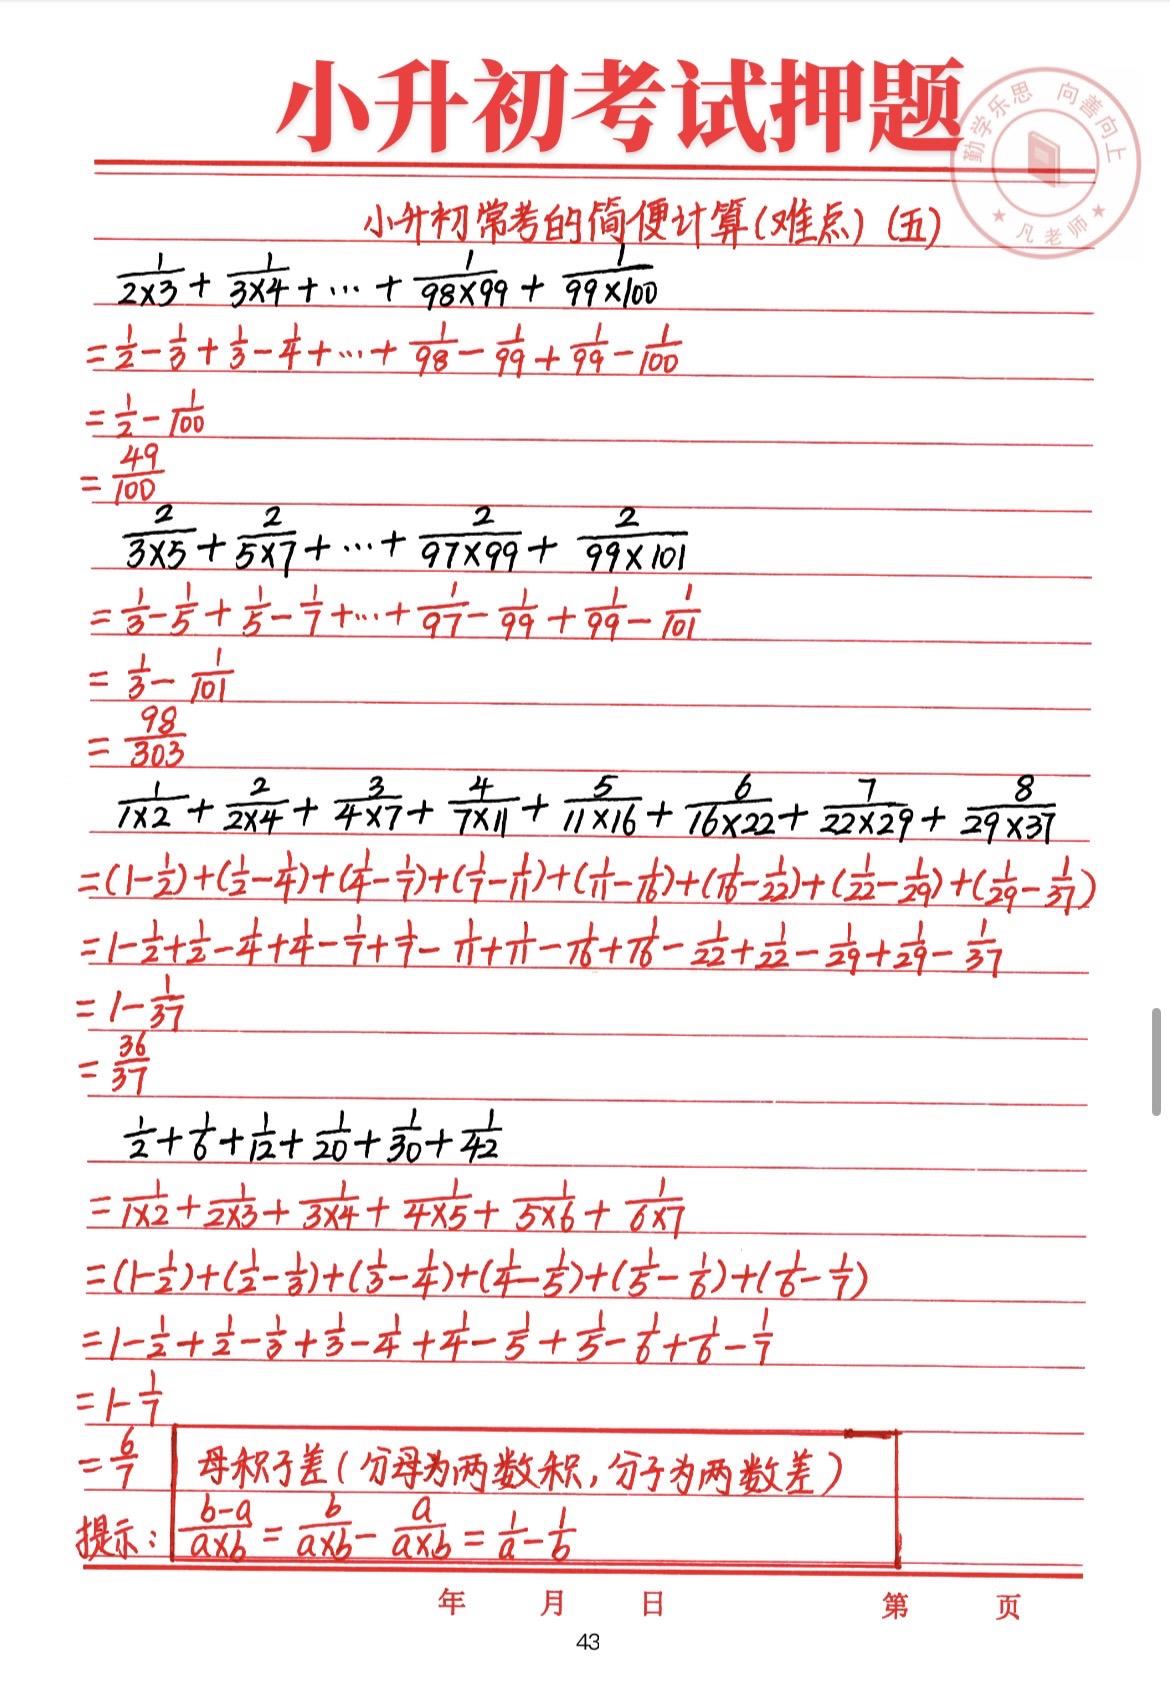 小升初考试押题
勤学乐思 向善向上
凡老师
小升初常考的简便计算(难点)(五)
1/(2×3) + 1/(3×4) + … + 1/(98×99) + 1/(99×100)
= 1/2 - 1/3 + 1/3 - 1/4 + … + 1/98 - 1/99 + 1/99 - 1/100
= 1/2 - 1/100
= 49/100
2/(3×5) + 2/(5×7) + … + 2/(97×99) + 2/(99×101)
= 1/3 - 1/5 + 1/5 - 1/7 + … + 1/97 - 1/99 + 1/99 - 1/101
= 1/3 - 1/101
= 98/303
1/(1×2) + 2/(2×4) + 3/(4×7) + 4/(7×11) + 5/(11×16) + 6/(16×22) + 7/(22×29) + 8/(29×37)
= (1-1/2) + (1/2-1/4) + (1/4-1/7) + (1/7-1/11) + (1/11-1/16) + (1/16-1/22) + (1/22-1/29) + (1/29-1/37)
= 1 - 1/2 + 1/2 - 1/4 + 1/4 - 1/7 + 1/7 - 1/11 + 1/11 - 1/16 + 1/16 - 1/22 + 1/22 - 1/29 + 1/29 - 1/37
= 1 - 1/37
= 36/37
1/2 + 1/6 + 1/12 + 1/20 + 1/30 + 1/42
= 1/(1×2) + 1/(2×3) + 1/(3×4) + 1/(4×5) + 1/(5×6) + 1/(6×7)
= (1-1/2) + (1/2-1/3) + (1/3-1/4) + (1/4-1/5) + (1/5-1/6) + (1/6-1/7)
= 1 - 1/2 + 1/2 - 1/3 + 1/3 - 1/4 + 1/4 - 1/5 + 1/5 - 1/6 + 1/6 - 1/7
= 1 - 1/7
= 6/7
母积子差(分母为两数积,分子为两数差)
提示: (b-a)/(a×b) = b/(a×b) - a/(a×b) = 1/a - 1/b
年 月 日 第 页
43